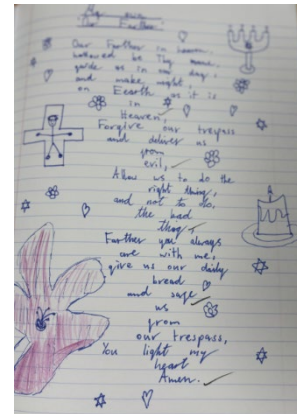 My own
Our Farther
Our Farther in heaven,
hallowed be Thy name.
guide us in our day,
and make night,
on Eearth as it is
in
Heaven,
Forgive our trespass
and delivers us
from
evil,
Allow us to do the
right thing,
and not to do,
the bad
thing
Farther you always
are with me,
give us our daily
bread
and safe
us
from
our trespass,
You light my
heart
Amen.